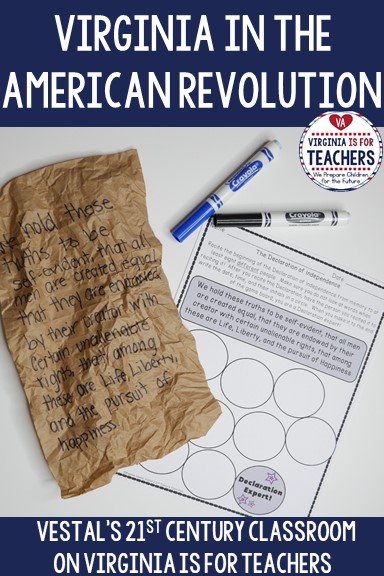 VIRGINIA IN THE
AMERICAN REVOLUTION
VA
VIRGINIA IS FOR
TEACHERS
We Prepare Children
for the Future
Crayola
Crayola
hold these
truths to be
self evident, that all
men are created equal
that they are endowed
by their creator with
certain unalienable
rights that among
these are Life, Liberty,
and the pursuit of
happiness.
Date
The Declaration of Independence
Recite the beginning of the Declaration of Independence from memory to at
least eight different people. Make sure you do not look at words when
We hold these truths to be self-evident, that all men
are created equal, that they are endowed by their
creator with certain unalienable rights, that among
these are Life, Liberty, and the pursuit of Happiness
Declaration
Expert!
VESTAL'S 21ST CENTURY CLASSROOM
ON VIRGINIA IS FOR TEACHERS